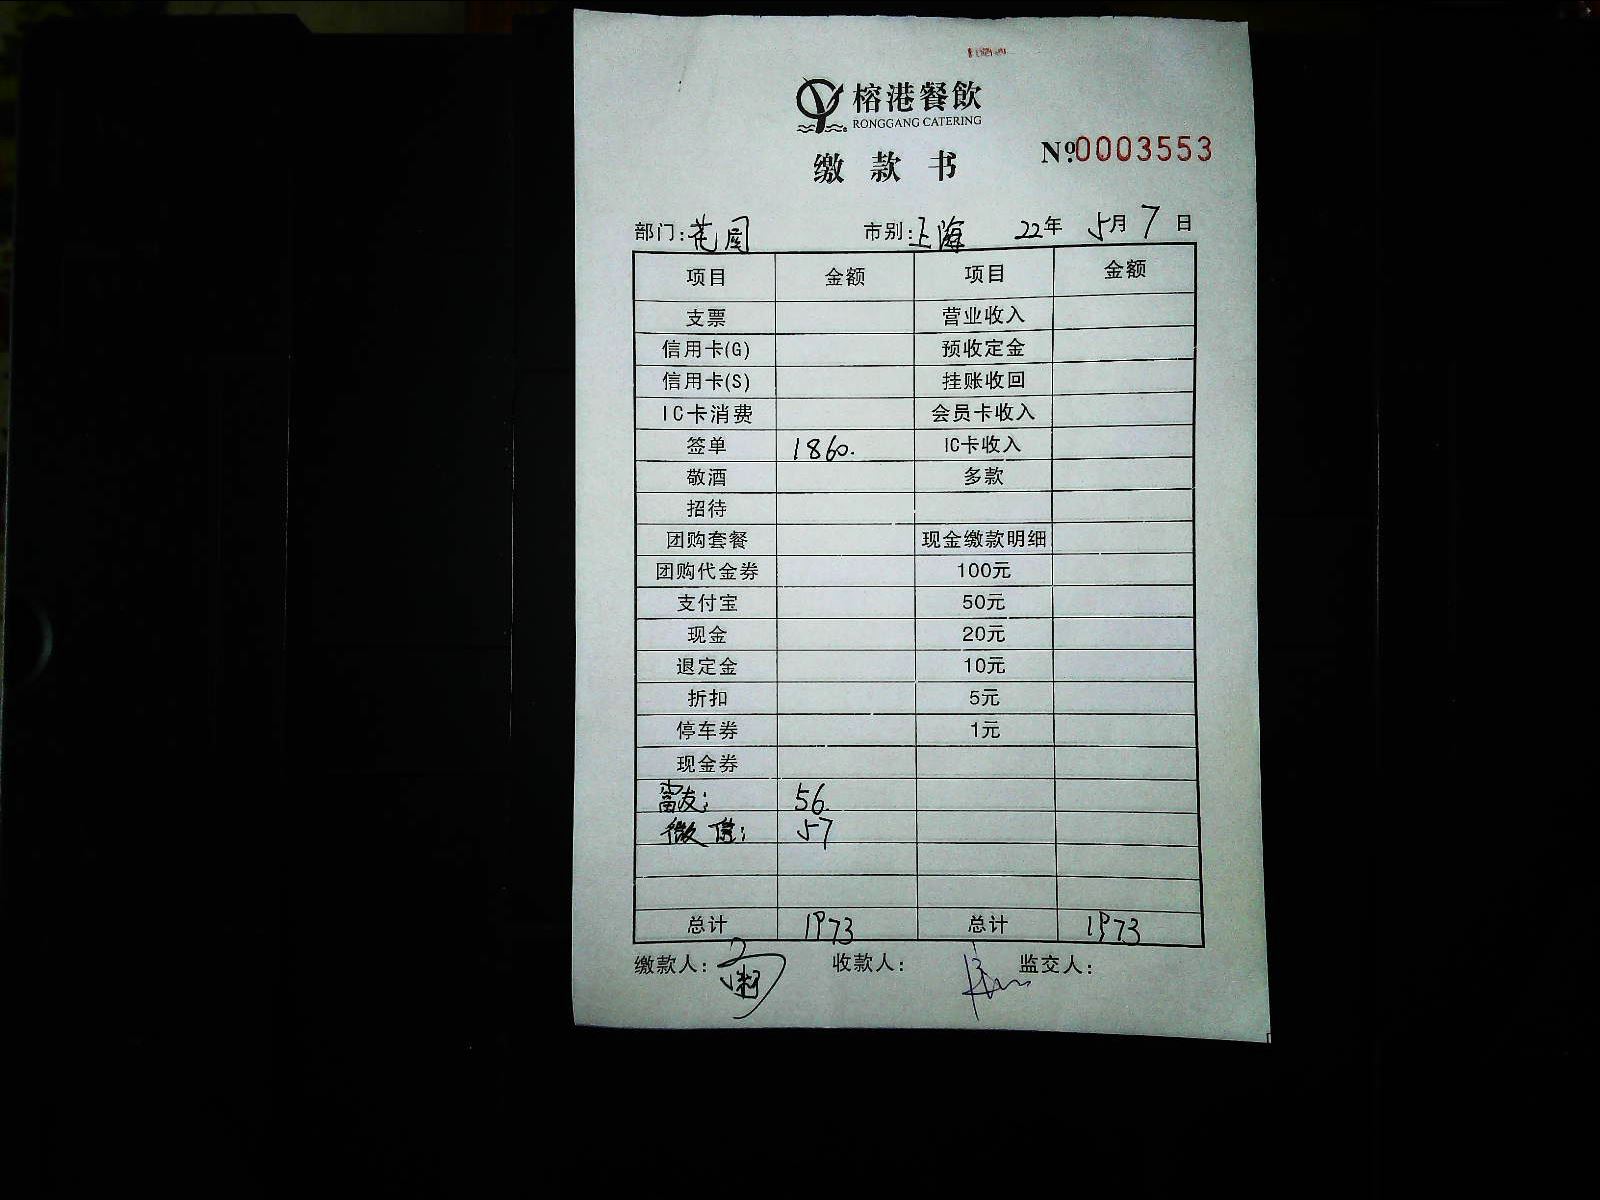 榕港餐飲
RONGGANG CATERING
缴款书
Nº0003553
部门: 市别:上海 22年 5月 7日
项目 金额 项目 金额
支票 营业收入
信用卡(G) 预收定金
信用卡(S) 挂账收回
IC卡消费 会员卡收入
签单 1860. IC卡收入
敬酒 多款
招待
团购套餐 现金缴款明细
团购代金券 100元
支付宝 50元
现金 20元
退定金 10元
折扣 5元
停车券 1元
现金券
富友: 56.
微信: 57
总计 1973 总计 1973
缴款人: 收款人: 监交人: